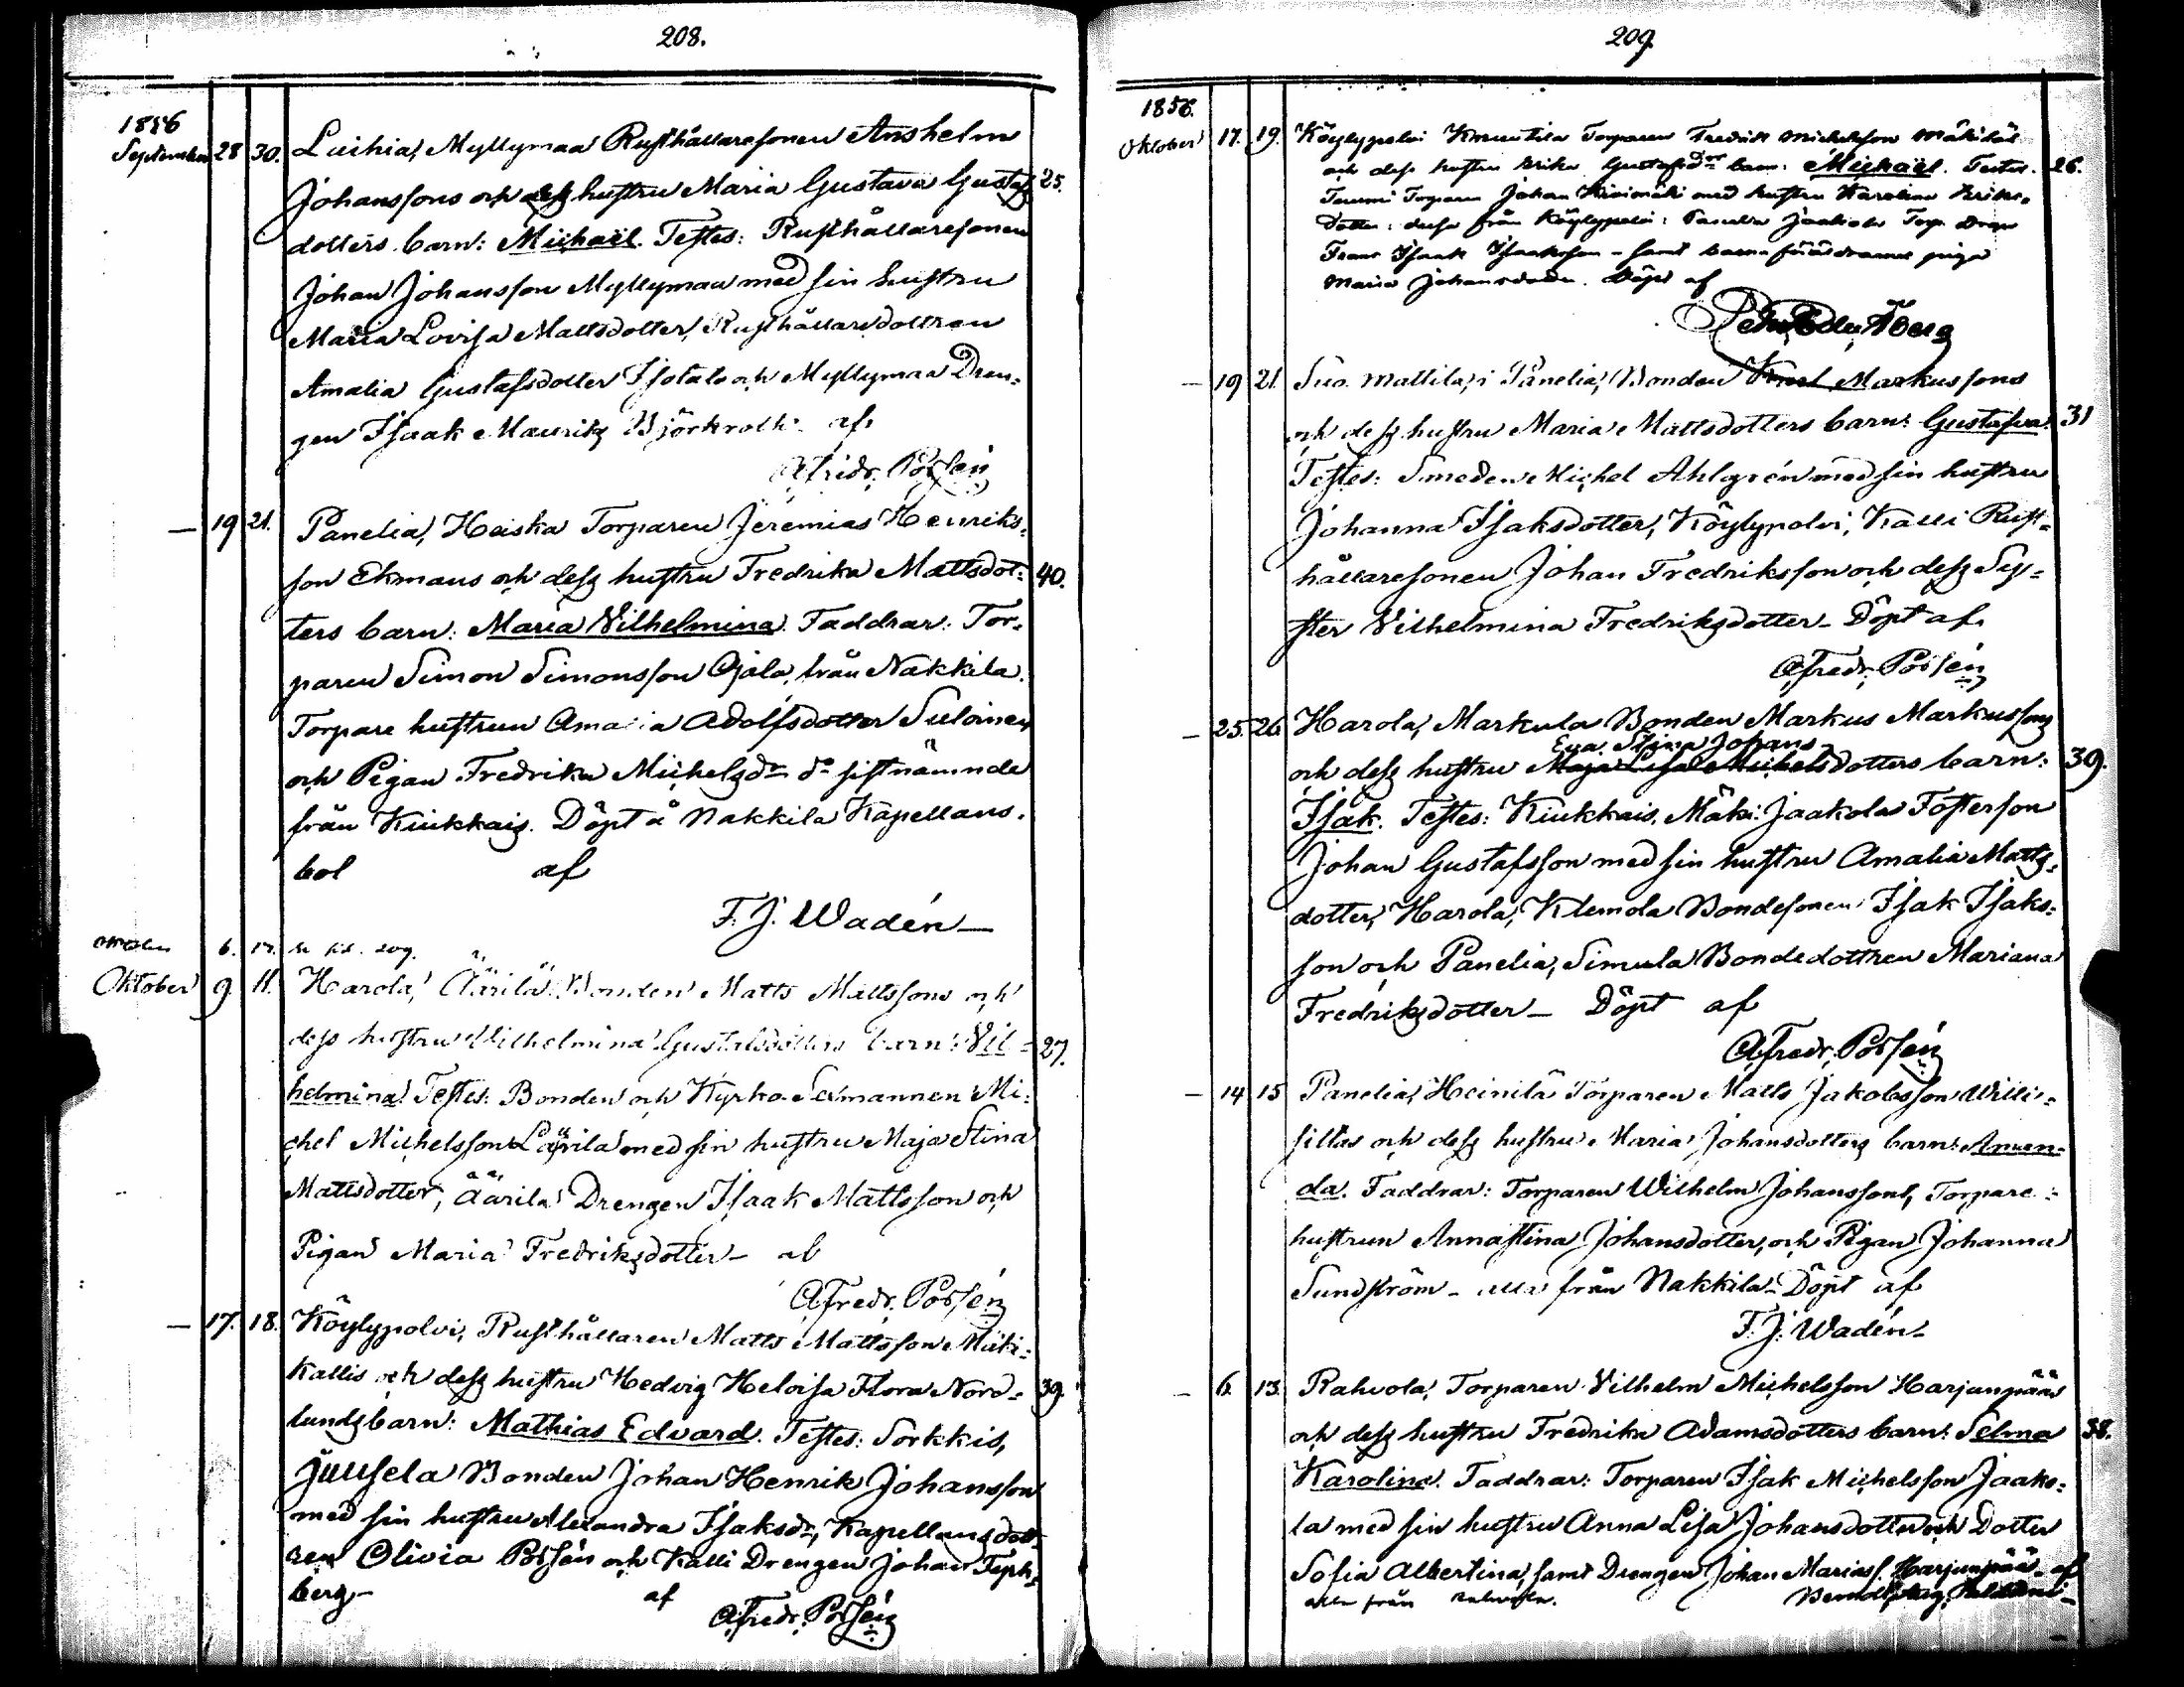 208.
1856
September 28 30. Luihia, Myllymaa Rusthållaresonen Anshelm
Johanssons och dess hustru Maria Gustava Gustafs- 25.
dotters barn: Michaël. Testes: Rusthållaresonen
Johan Johansson Myllymaa med sin hustru
Maria Lovisa Mattsdotter, Rusthållaredottren
Amalia Gustafsdotter Isotalo och Myllymaa Dren-
gen Isaak Mauritz Björkroth af
A. Fredr. Possén
— 19 21. Panelia, Heiska Torparen Jeremias Henriks-
son Ekmans och dess hustru Fredrika Mattsdot- 40.
ters barn: Maria Vilhelmina. Faddrar: Tor-
paren Simon Simonsson Ojala, från Nakkila.
Torpare hustrun Amalia Adolfsdotter Suloinen
och Pigan Fredrika Michelsdr do sistnämnde
från Kiukkais. Döpt å Nakkila Kapellans-
bol af
F. J. Wadén —
6. 209.
Oktober 9. 11. Harola, Äärilä Bonden Matts Mattssons och
dess hustru Vilhelmina Gustafsdotters barn: Vil- 27.
helmina. Testes: Bonden och Kyrko-Sexmannen Mi-
chel Michelsson Laurila med sin hustru Maja Stina
Mattsdotter, Äärilä Drengen Isaak Mattsson och
Pigan Maria Fredriksdotter — af
A. Fredr. Possén
— 17. 18. Köylypolvi, Rusthållaren Matts Mattsson Mäki-
Kallis och dess hustru Hedvig Heloisa Flora Nord- 39.
lunds barn: Mathias Edvard. Testes: Sorkkis,
Juusela Bonden Johan Henrik Johansson
med sin hustru Alexandra Isaksdr, Kapellansdott-
ren Olivia Possén och Kalli Drengen Johan
berg — af
A. Fredr. Possén
209.
1856.
Oktober 17. 19. Köylypolvi Knuutila Torparen Fredrik Michelsson
och dess hustru Ulrika Gustafsdrs barn: Michaël. Testes: 26.
Tommi Torparen Johan Kivimäki med hustru Karolina Eriks-
dotter; dessa från Köylypolvi: Panelia Jaakola Torp. Dreng
Frans Isaak Isaaksson — samt
Maria Johansdotter. Döpt af
— 19 21. Suo. Mattila, i Panelia, Bonden Karl Markussons
och dess hustru Maria Mattsdotters barn: Gustafva. 31
Testes: Smeden Michel Ahlgrén med sin hustru
Johanna Isaksdotter, Köylypolvi, Kalli Rust-
hållaresonen Johan Fredriksson och dess Sy-
ster Vilhelmina Fredriksdotter — Döpt af
A. Fredr. Possén
— 25. 26. Harola, Markula Bonden Markus Markussons
Eva Stina Johans
och dess hustru Maja Lisa Michelsdotters barn: 39.
Isak. Testes: Kiukkais, Mäki-Jaakola Fosterson
Johan Gustafsson med sin hustru Amalia Matts-
dotter, Harola, Klemola Bondesonen Isak Isaks-
son och Panelia, Simula Bondedottren Mariana
Fredriksdotter — Döpt af
A. Fredr. Possén
— 14 15 Panelia, Heinilä Torparen Matts Jakobsson Willi-
sillas och dess hustru Maria Johansdotters barn: Aman-
da. Faddrar: Torparen Wilhelm Johansson, Torpare-
hustrun Annastina Johansdotter, och Pigan Johanna
Sundström — alla från Nakkila — Döpt af
F. J. Wadén —
— 6. 13. Rahvola, Torparen Vilhelm Michelsson Harjunpää
och dess hustru Fredrika Adamsdotters barn: Selma 38.
Karolina. Faddrar: Torparen Isak Michelsson Jaako-
la med sin hustru Anna Lisa Johansdotter och Dotter
Sofia Albertina, samt Drengen Johan Mariass. Harjunpää — af
alla från Rahvola.